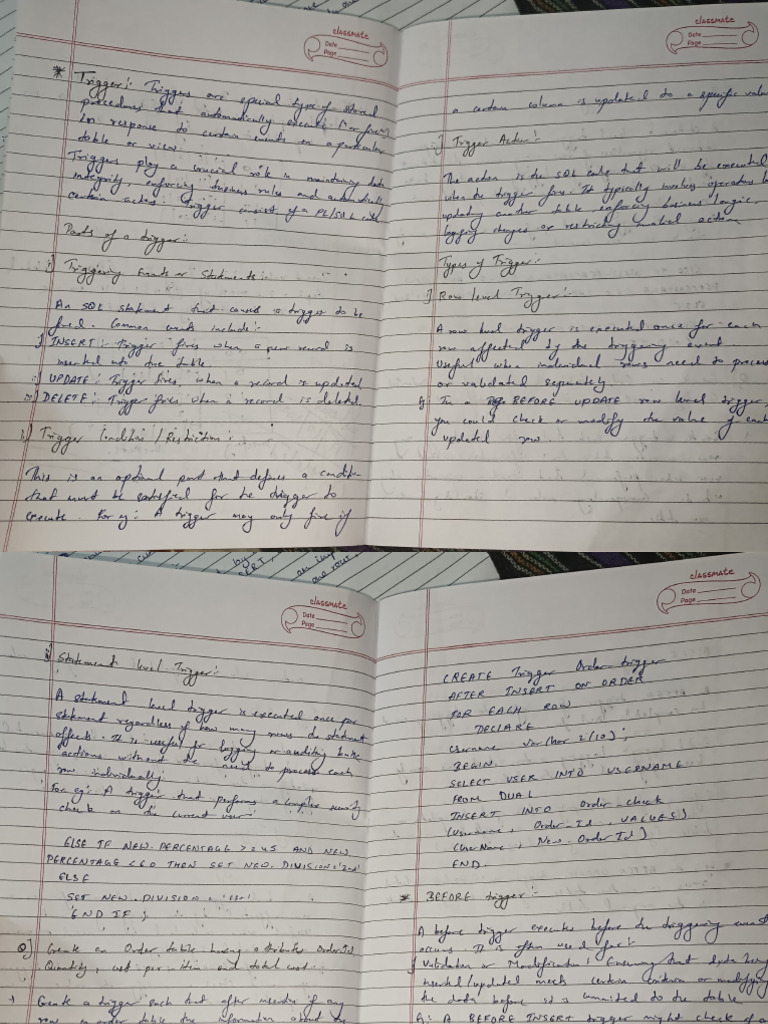 classmate
Date
Page
* Trigger: Triggers are special type of stored
procedures that automatically execute (or fires)
in response to certain events on a particular
table or view.
Triggers play a crucial role in maintaining data
integrity, enforcing business rules and automatically
certain acts. Trigger consist of a PL/SQL code
Parts of a trigger:
i) Triggering Events or Statements:
An SQL statement that causes a trigger to be
fired. Common events include:
i) INSERT: Trigger fires when a new record is
inserted into the table.
ii) UPDATE: Trigger fires, when a record is updated
iii) DELETE: Trigger fires when a record is deleted.
ii) Trigger Condition / Restriction:
This is an optional part that defines a condition
that must be satisfied for the trigger to
execute. For eg: A trigger may only fire if
classmate
Date
Page
a certain column is updated to a specific value
Trigger Action:
The action is the SQL code that will be executed
when the trigger fires. It typically involves operations
updating another table enforcing business logic,
logging changes or restricting action
Types of Trigger:
i) Row level Trigger:
A row level trigger is executed once for each
row affected by the triggering event.
Useful when individual rows need to process
or validated separately
Eg In a BEFORE UPDATE row level trigger,
you could check or modify the value of each
updated row.
classmate
Date
Page
ii) Statement level Trigger:
A statement level trigger is executed once per
statement regardless of how many rows the statement
affects. It is useful for logging or auditing
actions without the need to process each
row individually.
For eg: A trigger that performs a complex security
check on the current user.
ELSE IF NEW. PERCENTAGE > 45 AND NEW.
PERCENTAGE < 60 THEN SET NEW. DIVISION = '2nd'
ELSE
SET NEW. DIVISION =
END IF ;
Q) Create an Order table having attributes OrderId,
Quantity, cost per item and total cost.
→ Create a trigger such that after insertion of any
row in order table the information about the
classmate
Date
Page
CREATE Trigger Order_trigger
AFTER INSERT ON ORDER
FOR EACH ROW
DECLARE
Username varchar 2(10);
BEGIN
SELECT USER INTO USERNAME
FROM DUAL
INSERT INTO Order_check
(Username, Order_Id, VALUES)
(UserName, New. Order Id)
END.
* BEFORE trigger:
A before trigger executes before the triggering event
occurs. It is often used for:
i) Validation or Modification: Ensuring that data being
inserted/updated meets certain criteria or modifying
the data before it is commited to the table
Eg: A BEFORE INSERT trigger might check if a